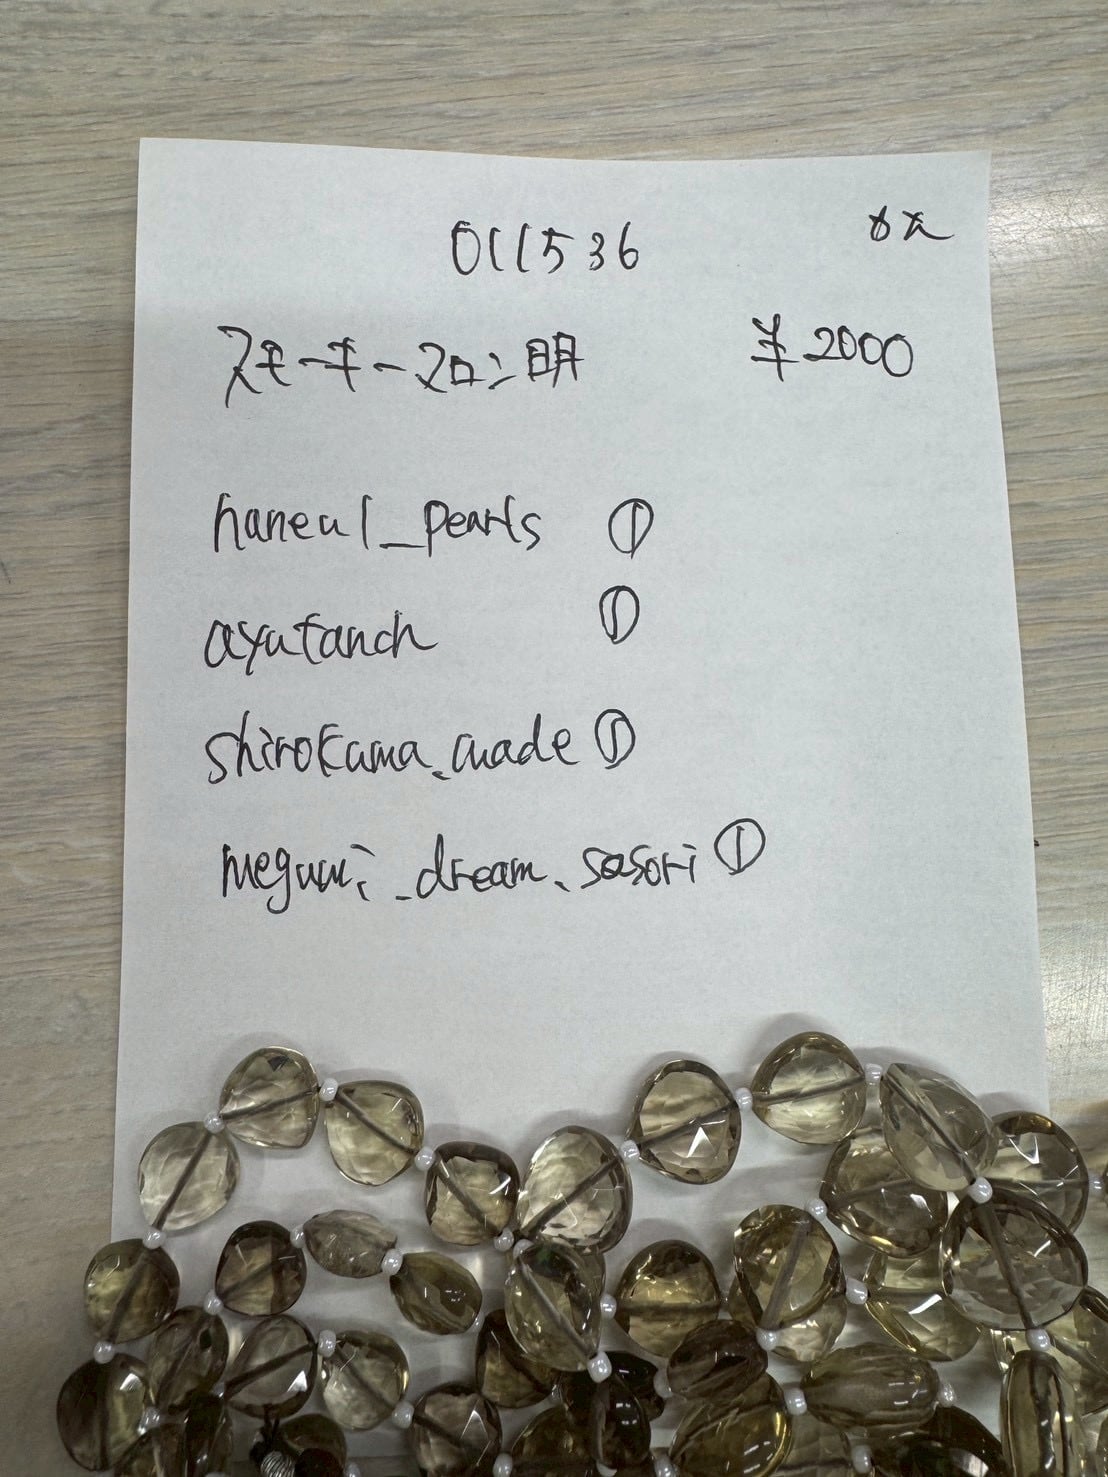 011536
スモーキークロン明 ¥2000
haneul_pearls ①
ayutanch ①
shirokuma_made ①
megumi_dream_sasori ①